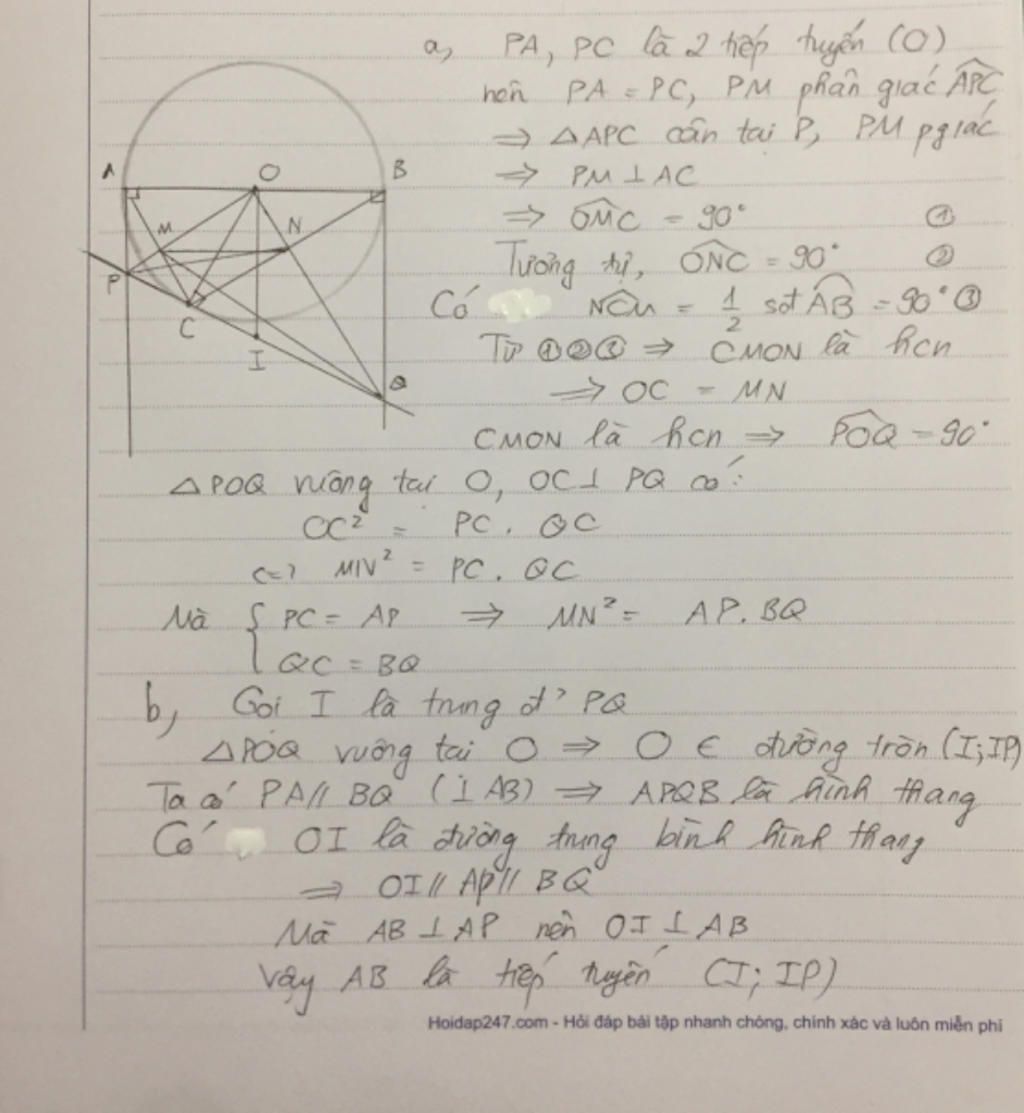 a, PA, PC là 2 tiếp tuyến (O)
nên PA = PC, PM phân giác APC
⇒ △APC cân tại P, PM pgiác
⇒ PM ⊥ AC
⇒ OMC = 90° ①
Tương tự, ONC = 90° ②
Có NCM = 1/2 sđt AB = 90° ③
Từ ①②③ ⇒ CMON là hcn
⇒ OC = MN
CMON là hcn ⇒ POQ = 90°
△POQ vuông tại O, OC ⊥ PQ có:
OC² = PC . QC
<=> MN² = PC . QC
Mà { PC = AP ⇒ MN² = AP . BQ
QC = BQ
b, Gọi I là trung đ' PQ
△POQ vuông tại O ⇒ O ∈ đường tròn (I; IP)
Ta có PA // BQ (⊥ AB) ⇒ APQB là hình thang
Có OI là đường trung bình hình thang
⇒ OI // AP // BQ
Mà AB ⊥ AP nên OI ⊥ AB
Vậy AB là tiếp tuyến (I; IP)
A
O
B
M
N
P
C
I
Q
Hoidap247.com - Hỏi đáp bài tập nhanh chóng, chính xác và luôn miễn phí